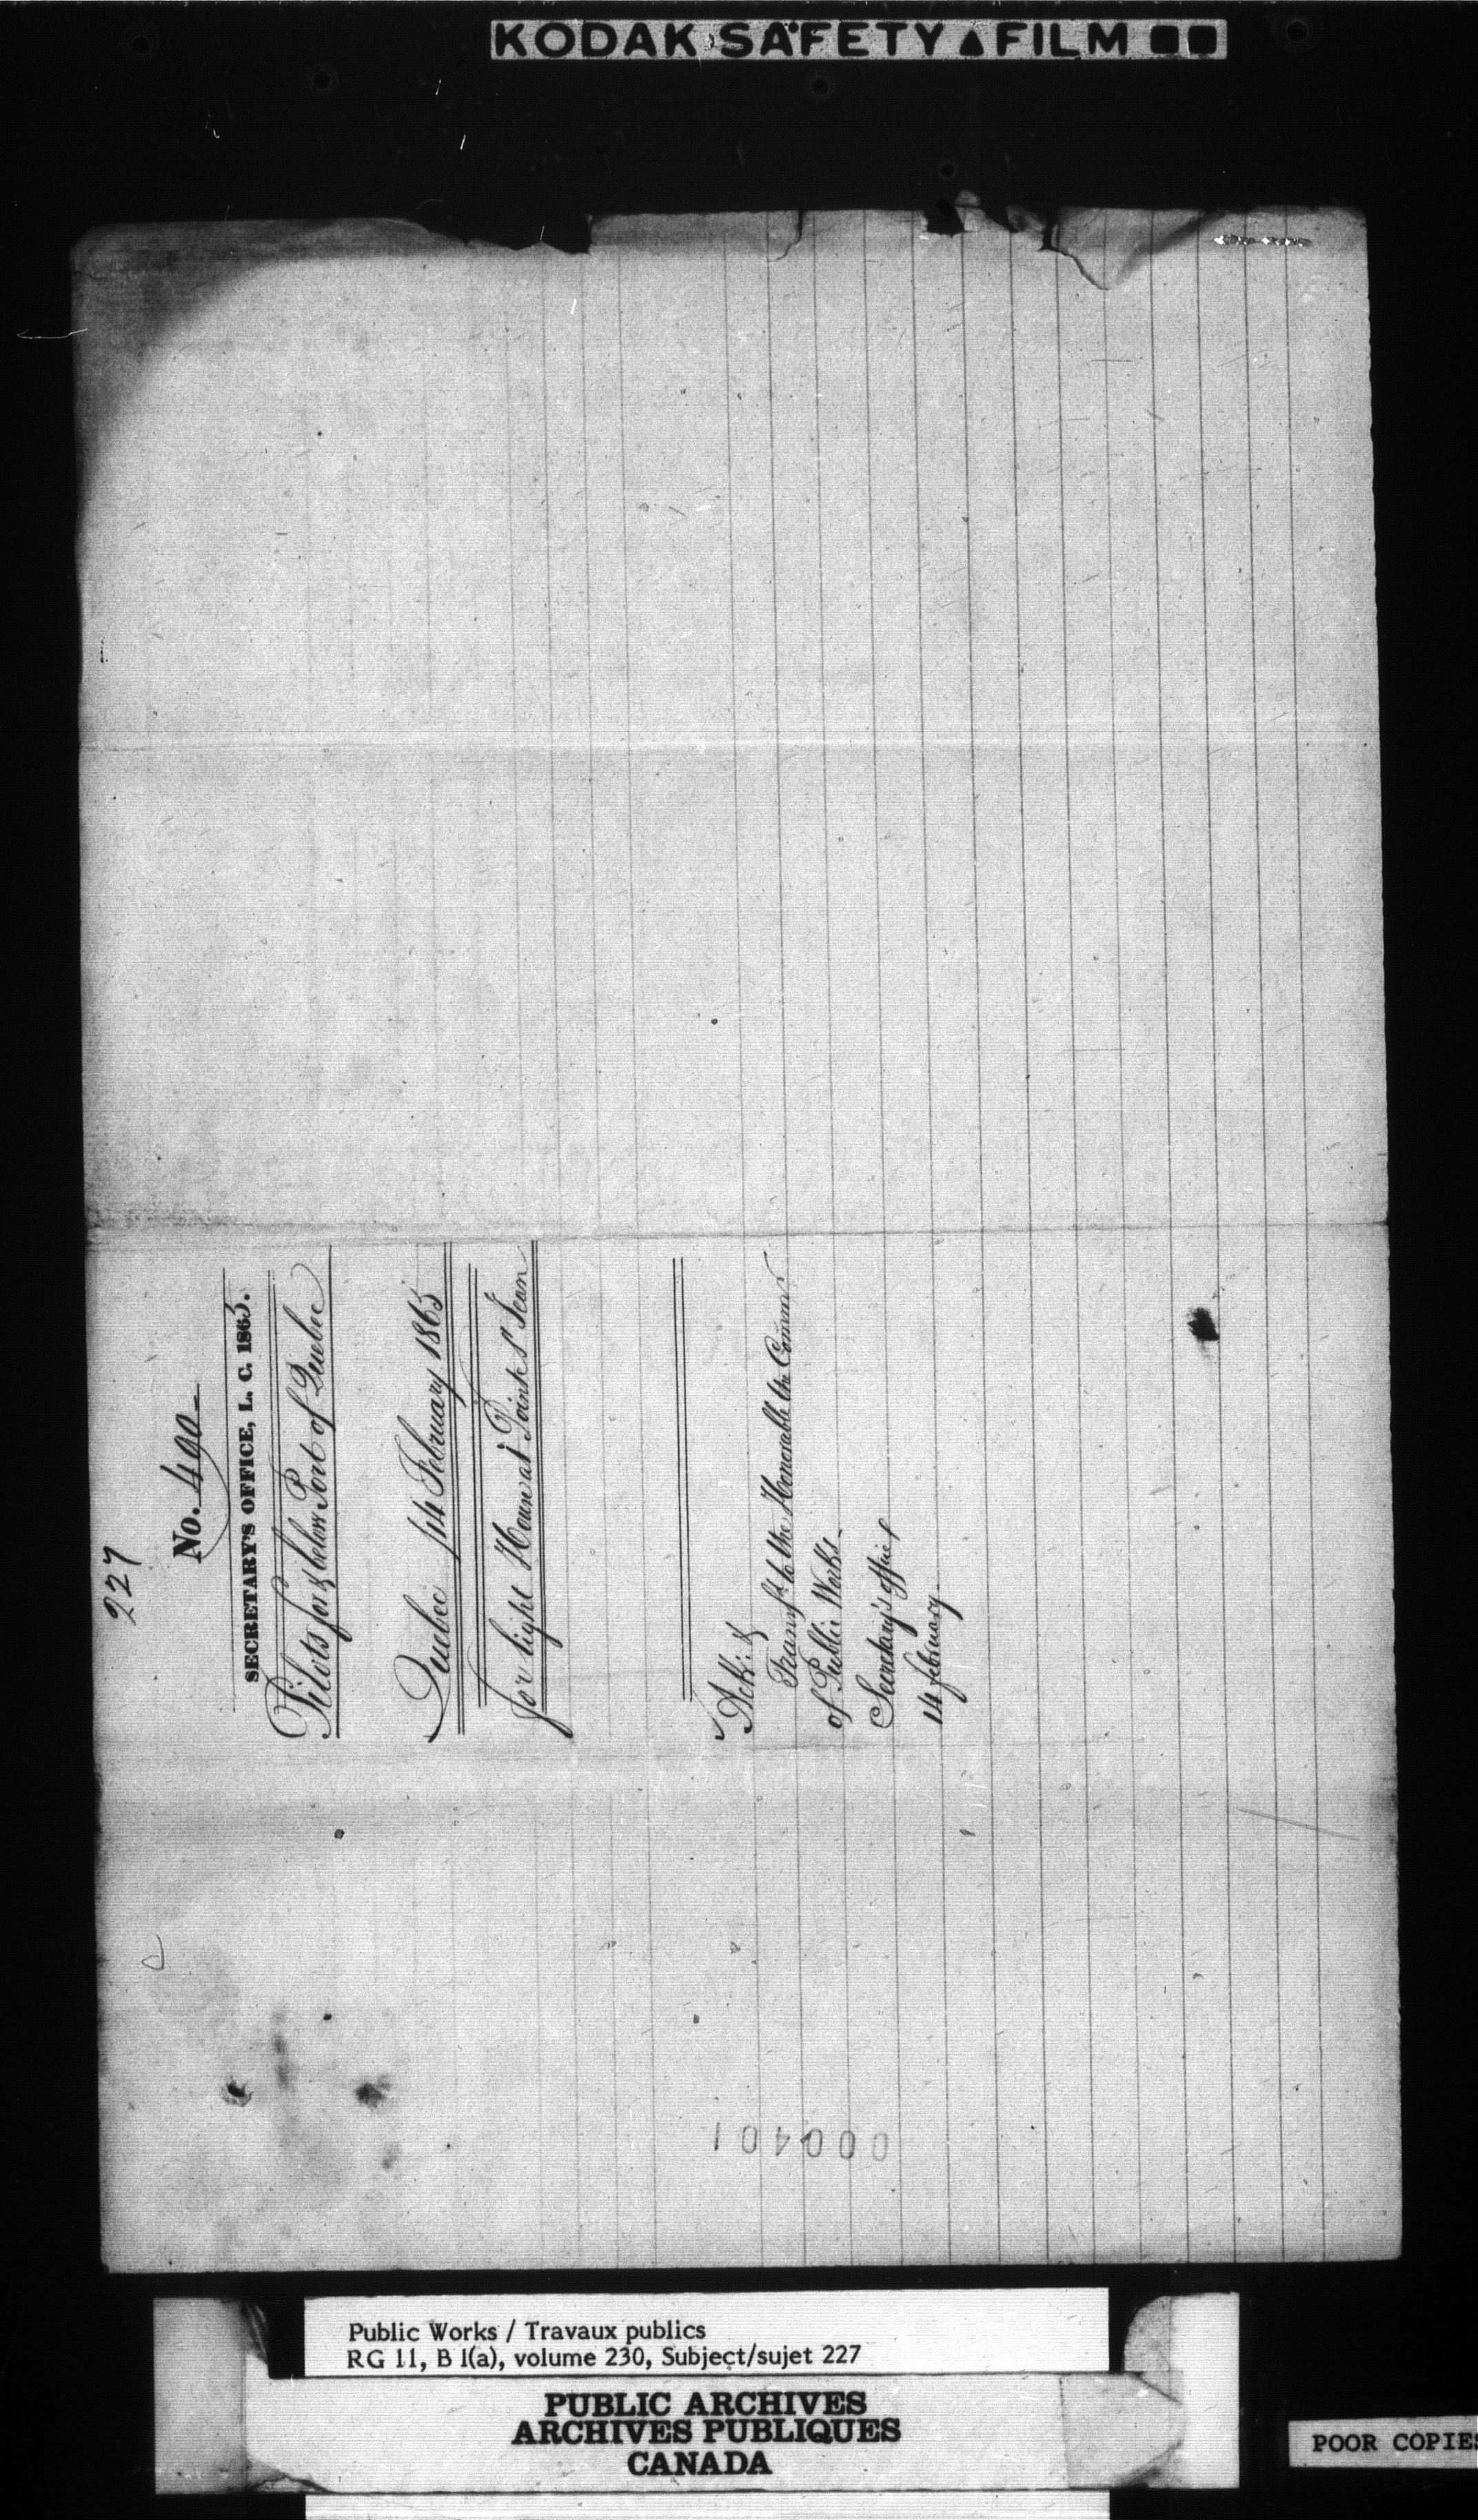 KODAK SAFETY ▲ FILM ■■
227
No. 490
SECRETARY'S OFFICE, L. C. 1865.
Pilots for & below Port of Quebec
Quebec 14 February 1865
for light House at Pointe St Jean
Transfd to the Honorable the Commr
of Public Works
Secretary's office
14 february
000401
Public Works / Travaux publics
RG 11, B 1(a), volume 230, Subject/sujet 227
PUBLIC ARCHIVES
ARCHIVES PUBLIQUES
CANADA
POOR COPIES